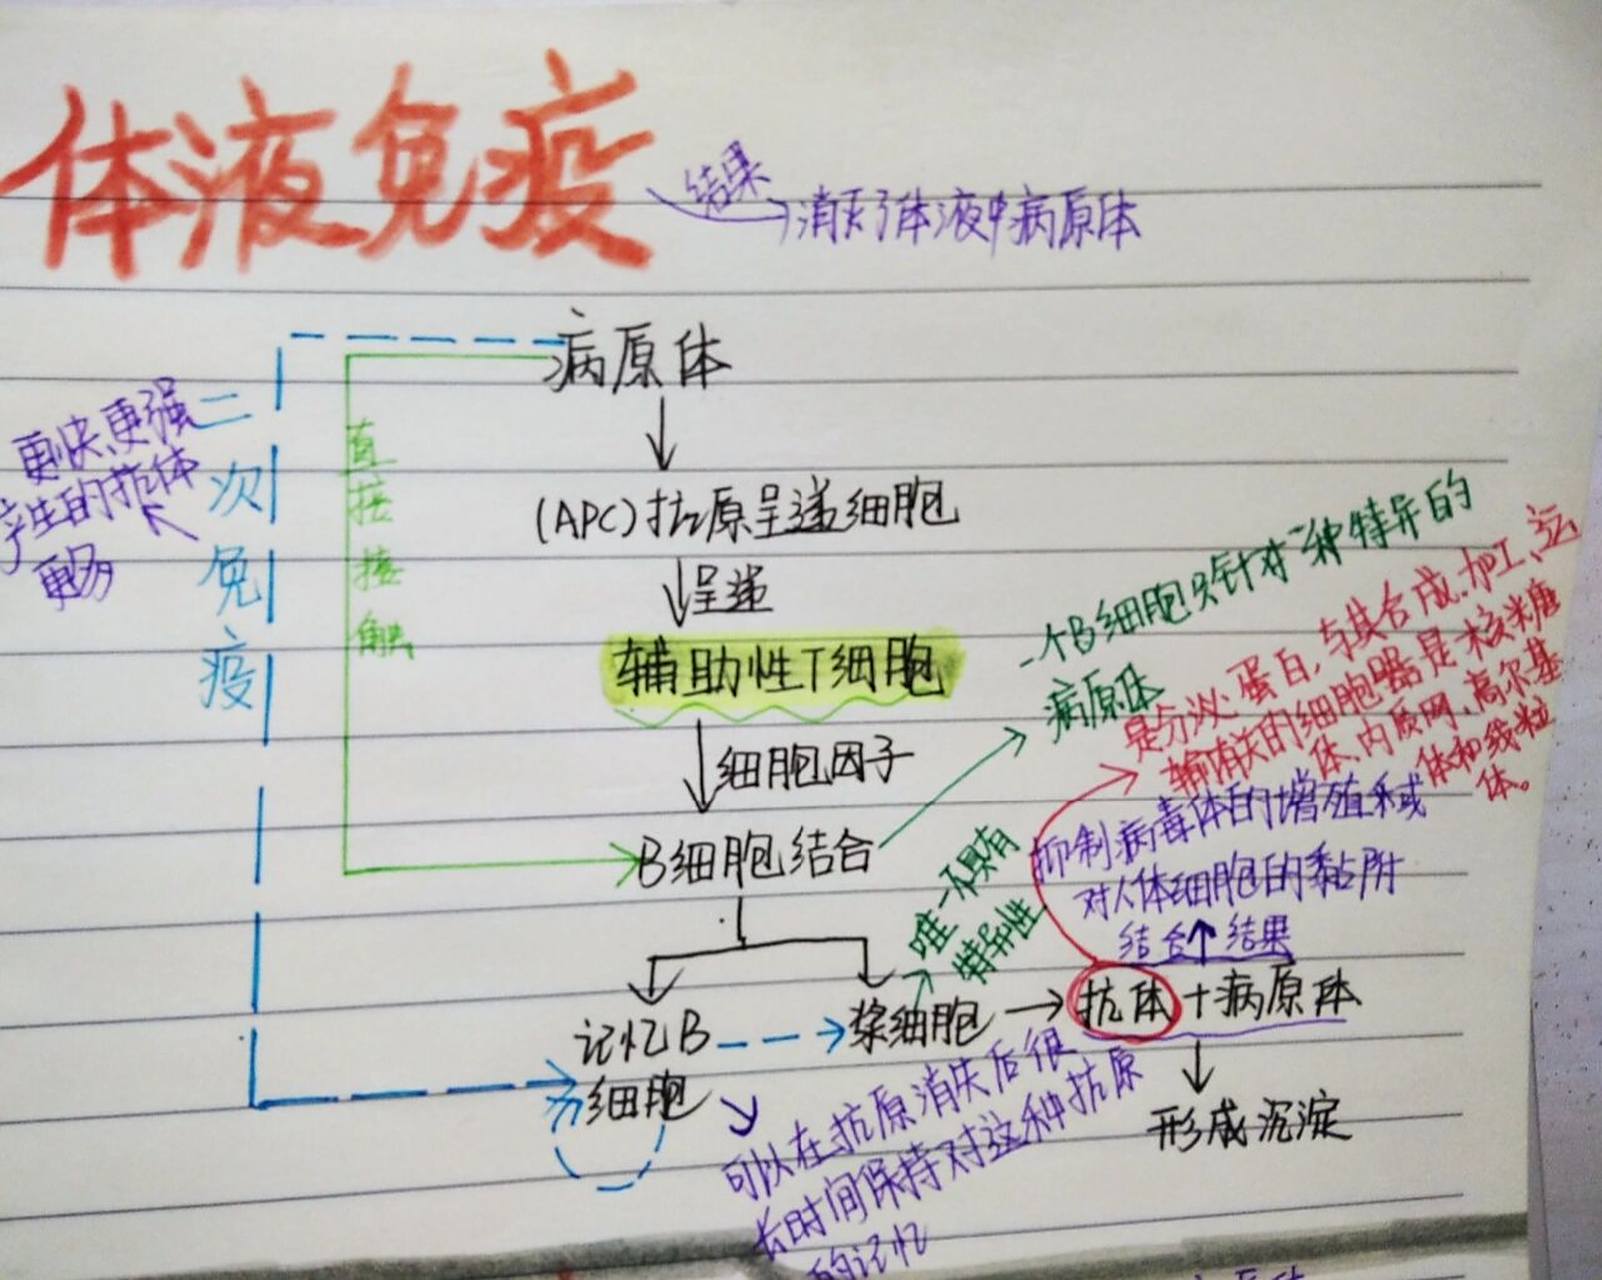 体液免疫
结果
消灭了体液中病原体
病原体
二次免疫
更快、更强
产生的抗体
更多
直接接触
(APC)抗原呈递细胞
呈递
辅助性T细胞
细胞因子
B细胞结合
一个B细胞只针对一种特异的
病原体
是分泌蛋白,与其合成.加工、运
输有关的细胞器是核糖
体、内质网、高尔基
体和线粒
体。
唯一不具有
特异性
抑制病毒体的增殖和或
对人体细胞的黏附
结合 结果
记忆B
细胞
浆细胞
抗体+病原体
形成沉淀
可以在抗原消失后很
长时间保持对这种抗原
的记忆